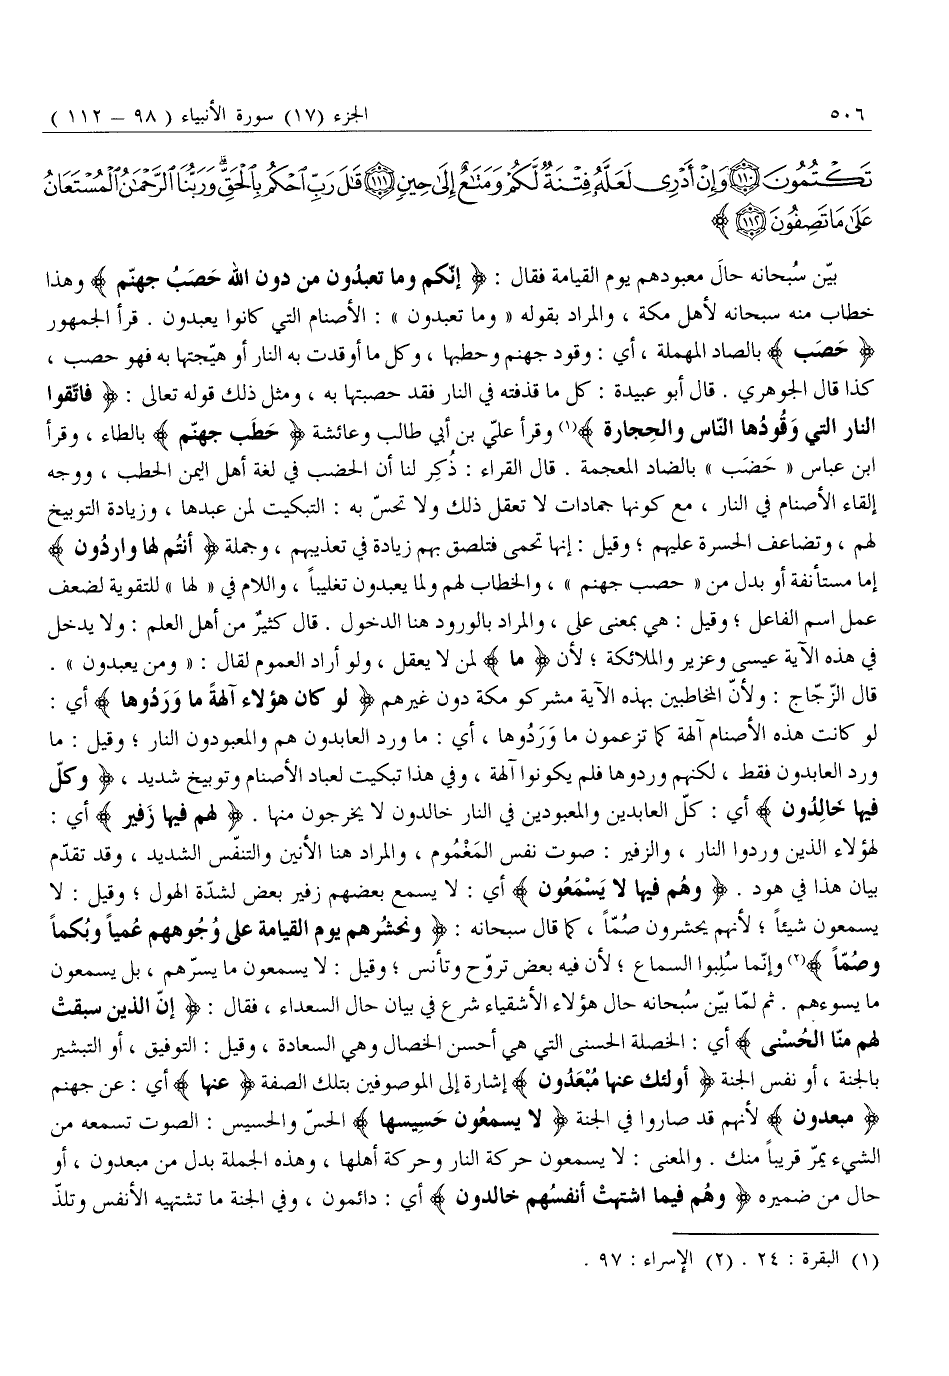 ٥٠٦ الجزء (١٧) سورة الأنبياء ( ٩٨ – ١١٢ )
تَكْتُمُونَ ﴿١١٠﴾ وَإِنْ أَدْرِى لَعَلَّهُۥ فِتْنَةٌ لَّكُمْ وَمَتَٰعٌ إِلَىٰ حِينٍ ﴿١١١﴾ قَٰلَ رَبِّ ٱحْكُم بِٱلْحَقِّ ۗ وَرَبُّنَا ٱلرَّحْمَٰنُ ٱلْمُسْتَعَانُ
عَلَىٰ مَا تَصِفُونَ ﴿١١٢﴾ ﴾
بيّن سُبحانه حالَ معبودهم يوم القيامة فقال : ﴿ إنّكم وما تعبدُون من دون الله حَصَبُ جهنّم ﴾ وهذا
خطاب منه سبحانه لأهل مكة ، والمراد بقوله « وما تعبدون » : الأصنام التي كانوا يعبدون . قرأ الجمهور
﴿ حَصَب ﴾ بالصاد المهملة ، أي : وقود جهنم وحطبها ، وكل ما أوقدت به النار أو هيّجتها به فهو حصب ،
كذا قال الجوهري . قال أبو عبيدة : كل ما قذفته في النار فقد حصبتها به ، ومثل ذلك قوله تعالى : ﴿ فاتّقوا
النار التي وَقُودُها النّاس والحِجارة ﴾(١) وقرأ عليّ بن أبي طالب وعائشة ﴿ حَطَب جهنّم ﴾ بالطاء ، وقرأ
ابن عباس « حَضَب » بالضاد المعجمة . قال الفراء : ذُكِر لنا أن الحضب في لغة أهل اليمن الحطب ، ووجه
إلقاء الأصنام في النار ، مع كونها جمادات لا تعقل ذلك ولا تحسّ به : التبكيت لمن عبدها ، وزيادة التوبيخ
لهم ، وتضاعف الحسرة عليهم ؛ وقيل : إنها تحمى فتلصق بهم زيادة في تعذيبهم ، وجملة ﴿ أنتُم لها واردُون ﴾
إما مستأنفة أو بدل من « حصب جهنم » ، والخطاب لهم ولما يعبدون تغليباً ، واللام في « لها » للتقوية لضعف
عمل اسم الفاعل ؛ وقيل : هي بمعنى على ، والمراد بالورود هنا الدخول . قال كثيرٌ من أهل العلم : ولا يدخل
في هذه الآية عيسى وعزير والملائكة ؛ لأن ﴿ ما ﴾ لمن لا يعقل ، ولو أراد العموم لقال : « ومن يعبدون » .
قال الزّجّاج : ولأنّ المخاطبين بهذه الآية مشركو مكة دون غيرهم ﴿ لو كان هؤلاء آلهةً ما وَرَدُوها ﴾ أي :
لو كانت هذه الأصنام آلهة كما تزعمون ما وَرَدُوها ، أي : ما ورد العابدون هم والمعبودون النار ؛ وقيل : ما
ورد العابدون فقط ، لكنهم وردوها فلم يكونوا آلهة ، وفي هذا تبكيت لعباد الأصنام وتوبيخ شديد ، ﴿ وكلّ
فيها خَالِدُون ﴾ أي : كلّ العابدين والمعبودين في النار خالدون لا يخرجون منها . ﴿ لهم فيها زَفير ﴾ أي :
لهؤلاء الذين وردوا النار ، والزفير : صوت نفس المَغْمُوم ، والمراد هنا الأنين والتنفّس الشديد ، وقد تقدّم
بيان هذا في هود . ﴿ وهُم فيها لا يَسْمَعُون ﴾ أي : لا يسمع بعضهم زفير بعض لشدّة الهول ؛ وقيل : لا
يسمعون شيئاً ؛ لأنهم يحشرون صُمّاً ، كما قال سبحانه : ﴿ ونحشُرهم يوم القيامة على وُجُوههم عُمياً وبُكماً
وصُمّاً ﴾(٢) وإنّما سُلِبوا السماع ؛ لأن فيه بعض تروّح وتأنس ؛ وقيل : لا يسمعون ما يسرّهم ، بل يسمعون
ما يسوءهم . ثم لمّا بيّن سُبحانه حال هؤلاء الأشقياء شرع في بيان حال السعداء ، فقال : ﴿ إنّ الذين سبقتْ
لهم منّا الحُسْنى ﴾ أي : الخصلة الحسنى التي هي أحسن الخصال وهي السعادة ، وقيل : التوفيق ، أو التبشير
بالجنة ، أو نفس الجنة ﴿ أولئك عنها مُبْعَدُون ﴾ إشارة إلى الموصوفين بتلك الصفة ﴿ عنها ﴾ أي : عن جهنم
﴿ مبعدون ﴾ لأنهم قد صاروا في الجنة ﴿ لا يسمعُون حَسِيسها ﴾ الحسّ والحسيس : الصوت تسمعه من
الشيء يمرّ قريباً منك . والمعنى : لا يسمعون حركة النار وحركة أهلها ، وهذه الجملة بدل من مبعدون ، أو
حال من ضميره ﴿ وهُم فيما اشتهتْ أنفسُهم خالدون ﴾ أي : دائمون ، وفي الجنة ما تشتهيه الأنفس وتلذّ
(١) البقرة : ٢٤ . (٢) الإسراء : ٩٧ .